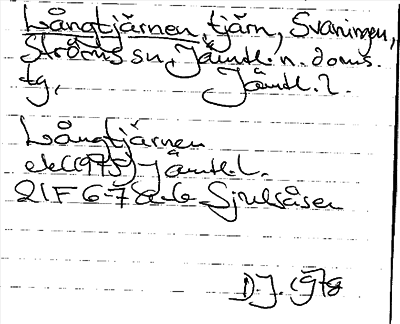 Långtjärnen, tjärn, Svaningen,
Ströms sn, Jämtl. n. doms.
tg, Jämtl. l.
Långtjärnen
ek (1975) Jämtl. l.
21F 6-7 a-b Sjulsåsen
D.J. 1978